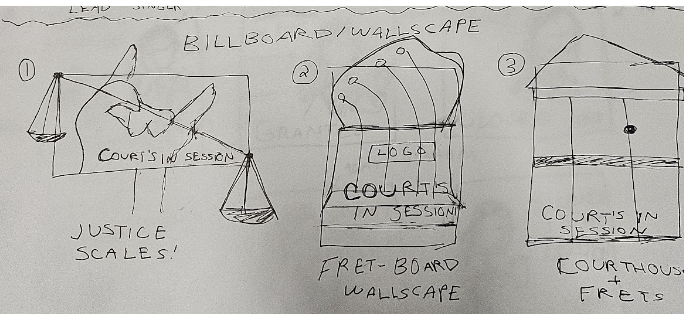 LEAD SINGER
BILLBOARD/WALLSCAPE
①
COURT'S IN SESSION
JUSTICE
SCALES!
②
LOGO
COURT'S
IN SESSION
FRET-BOARD
WALLSCAPE
③
COURT'S IN
SESSION
COURTHOUS
+
FRETS